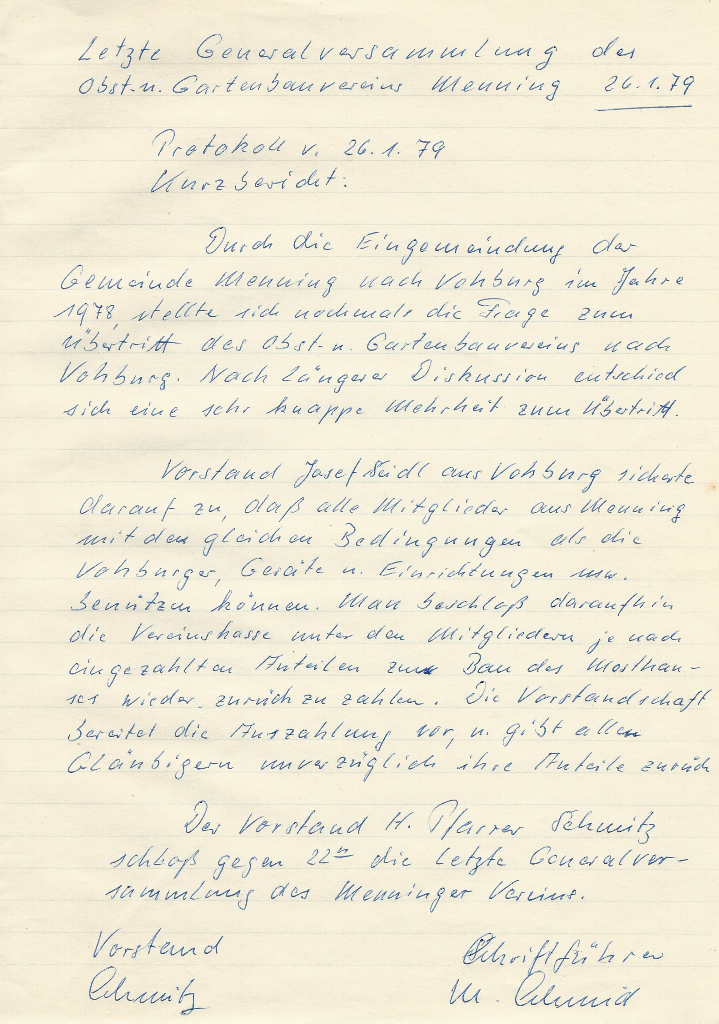 Letzte Generalversammlung des
Obst- u. Gartenbauvereins Menning 26.1.79
Protokoll v. 26.1.79
Kurzbericht:
Durch die Eingemeindung der
Gemeinde Menning nach Vohburg im Jahre
1978, stellte sich nochmals die Frage zum
Übertritt des Obst- u. Gartenbauvereins nach
Vohburg. Nach längerer Diskussion entschied
sich eine sehr knappe Mehrheit zum Übertritt.
Vorstand Josef Seidl aus Vohburg sicherte
darauf zu, daß alle Mitglieder aus Menning
mit den gleichen Bedingungen als die
Vohburger, Geräte u. Einrichtungen usw.
benützen können. Man beschloß daraufhin
die Vereinskasse unter den Mitgliedern je nach
eingezahlten Anteilen zum Bau des Mosthau-
ses wieder zurück zu zahlen. Die Vorstandschaft
bereitet die Auszahlung vor, u. gibt allen
Gläubigern unverzüglich ihre Anteile zurück
Der Vorstand H. Pfarrer Schmitz
schloß gegen 22 die letzte Generalver-
sammlung des Menninger Vereins.
Vorstand Schriftführer
Schmitz M. Schmid